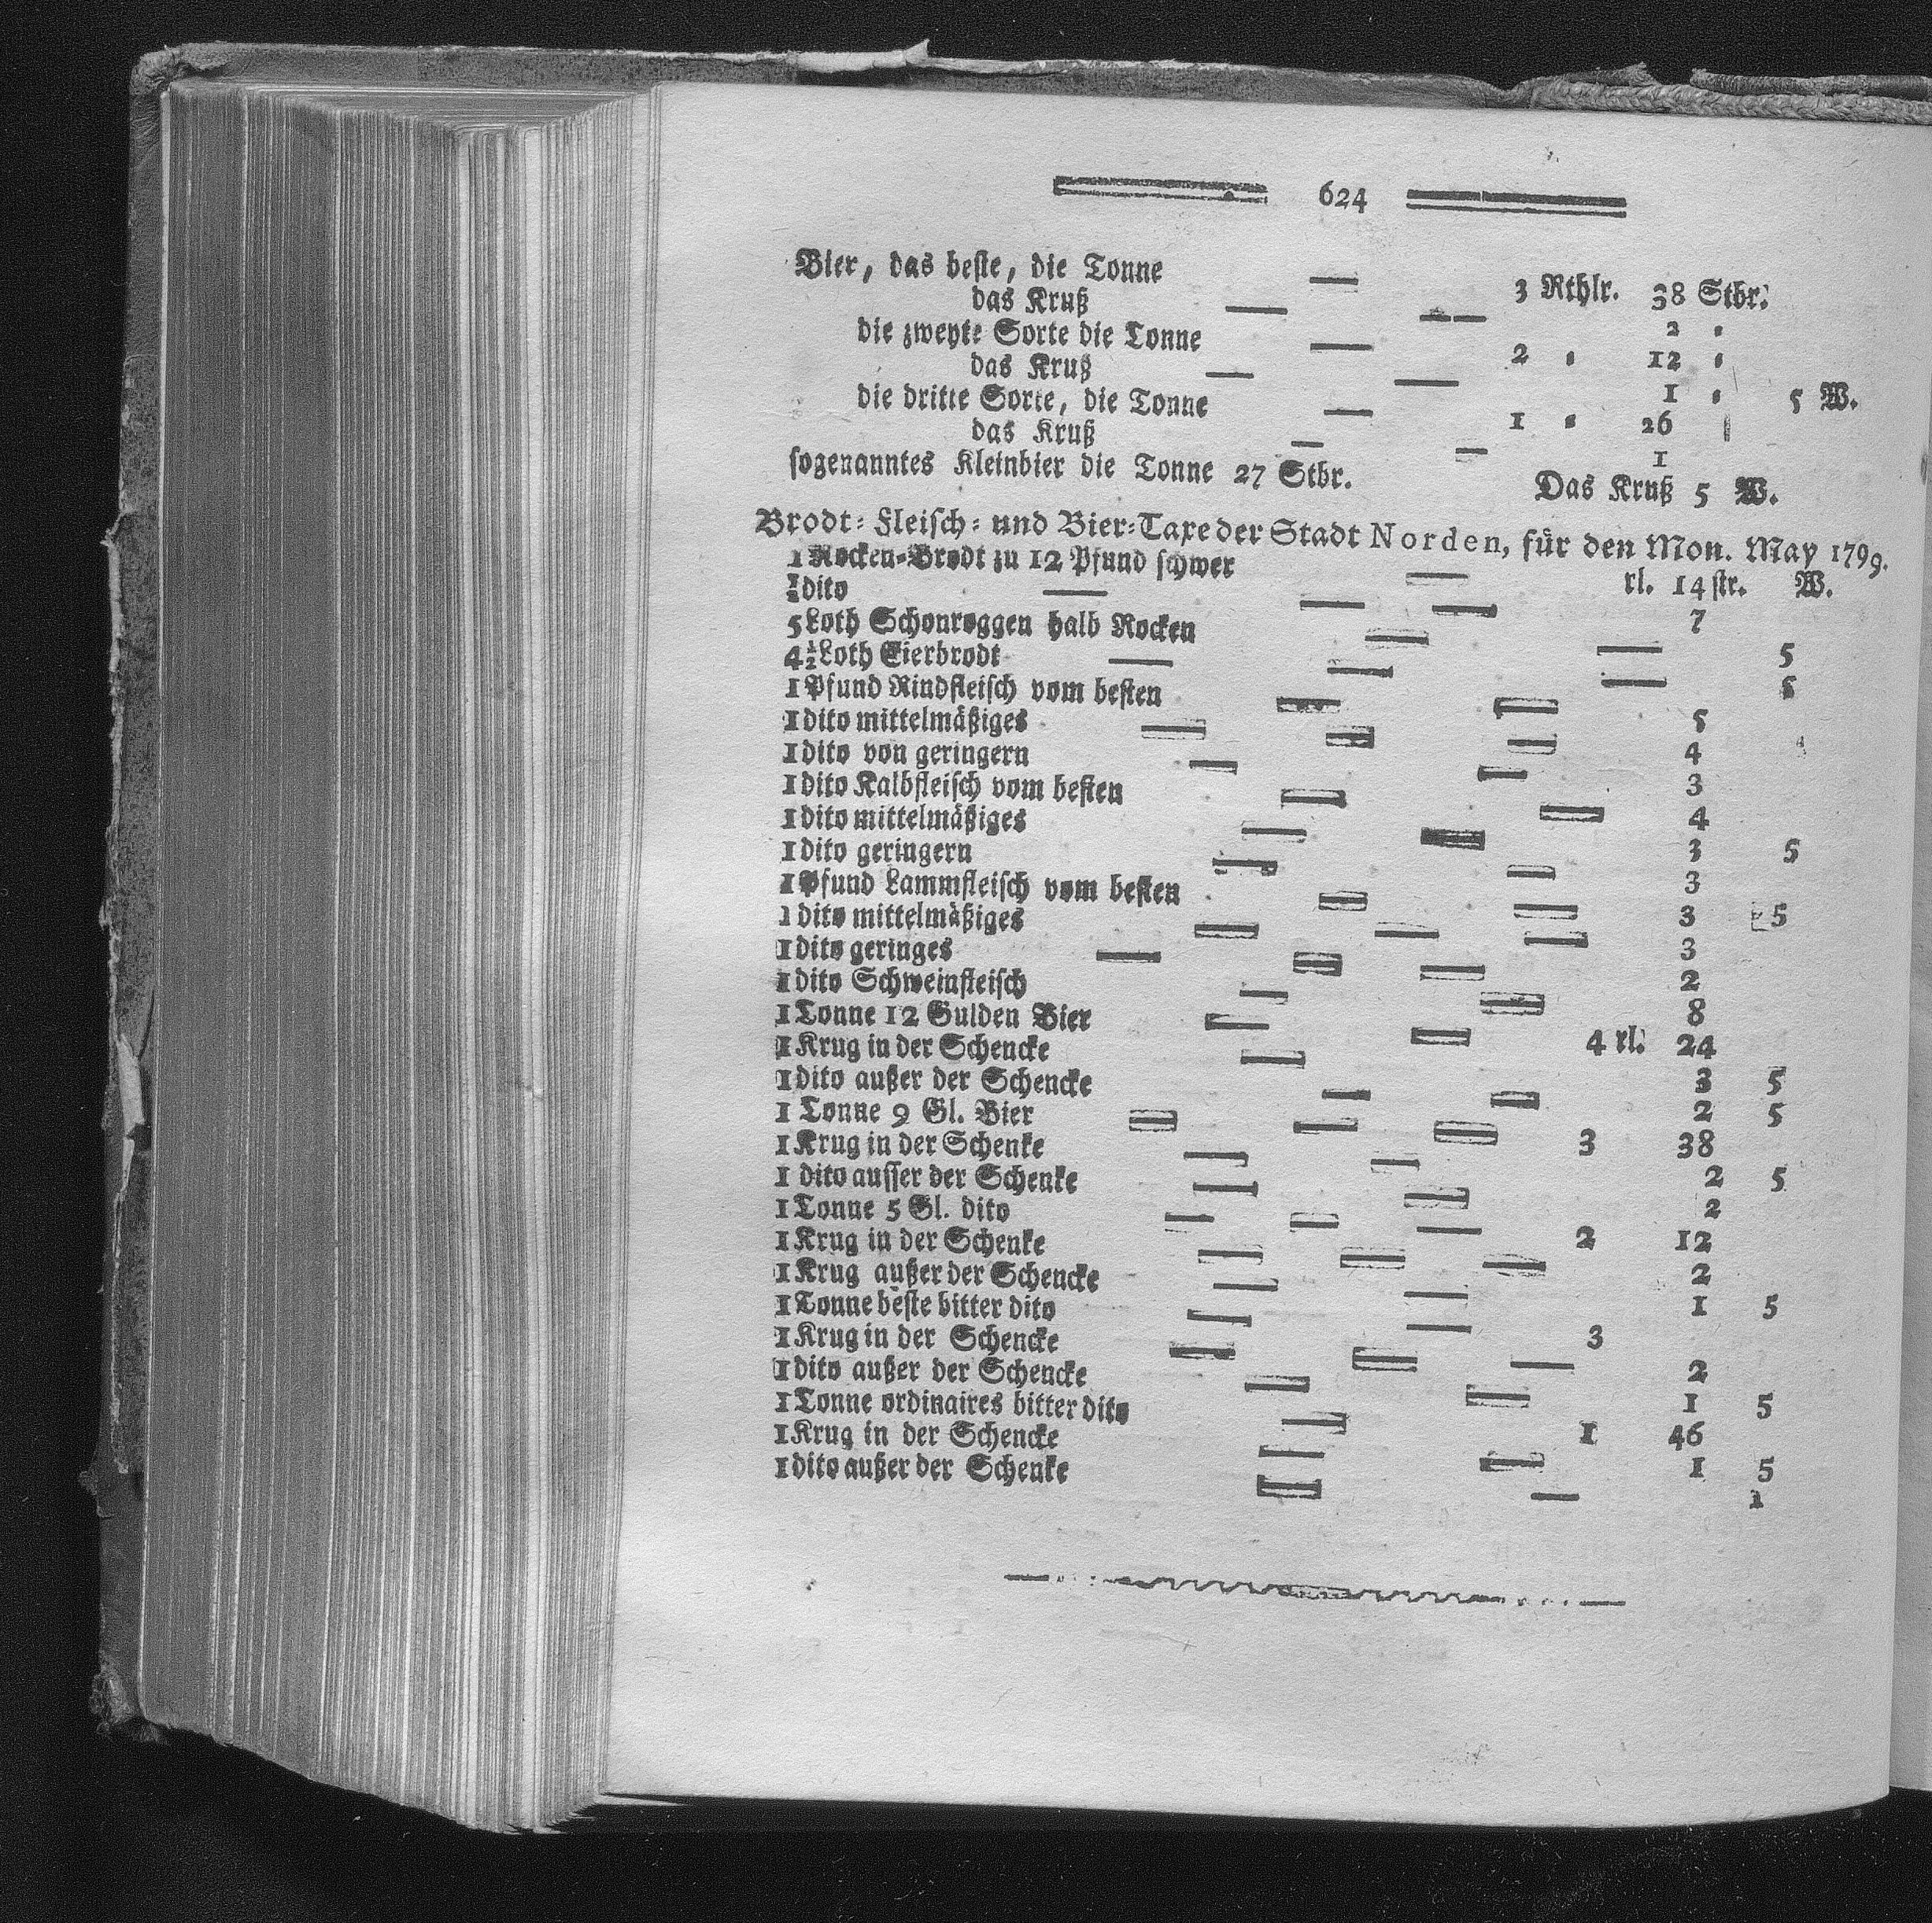 624
Bier, das beste, die Tonne — 3 Rthlr. 38 Stbr.
das Kruß — — — 2 ⸗
die zweyte Sorte die Tonne — 2 ⸗ 12 ⸗
das Kruß — — 1 ⸗ 5 W.
die dritte Sorte, die Tonne — 1 ⸗ 26
das Kruß — — 1
sogenanntes Kleinbier die Tonne 27 Stbr. Das Kruß 5 W.
Brodt⸗ Fleisch⸗ und Bier⸗Taxe der Stadt Norden, für den Mon. May 1799.
1 Rocken⸗Brodt zu 12 Pfund schwer — rl. 14 str. W.
½ dito — — — 7
5 Loth Schonroggen halb Rocken — — 5
4½ Loth Eierbrodt — — — 5
1 Pfund Rindfleisch vom besten — — 5
1 dito mittelmäßiges — — — 4
1 dito von geringern — — 3
1 dito Kalbfleisch vom besten — — 4
1 dito mittelmäßiges — — 3 5
1 dito geringern — — 3
1 Pfund Lammfleisch vom besten — — 3 5
1 dito mittelmäßiges — — — 3
1 dito geringes — — — 2
1 dito Schweinfleisch — — 8
1 Tonne 12 Gulden Bier — — 4 rl. 24
1 Krug in der Schencke — 3 5
1 dito außer der Schencke — — 2 5
1 Tonne 9 Gl. Bier — — — 3 38
1 Krug in der Schenke — — 2 5
1 dito ausser der Schenke — — 2
1 Tonne 5 Gl. dito — — — 2 12
1 Krug in der Schenke — — — 2
1 Krug außer der Schencke — — 1 5
1 Tonne beste bitter dito — — 3
1 Krug in der Schencke — — — 2
1 dito außer der Schencke — — 1 5
1 Tonne ordinaires bitter dito — 1 46
1 Krug in der Schencke — — 1 5
1 dito außer der Schenke — — 1